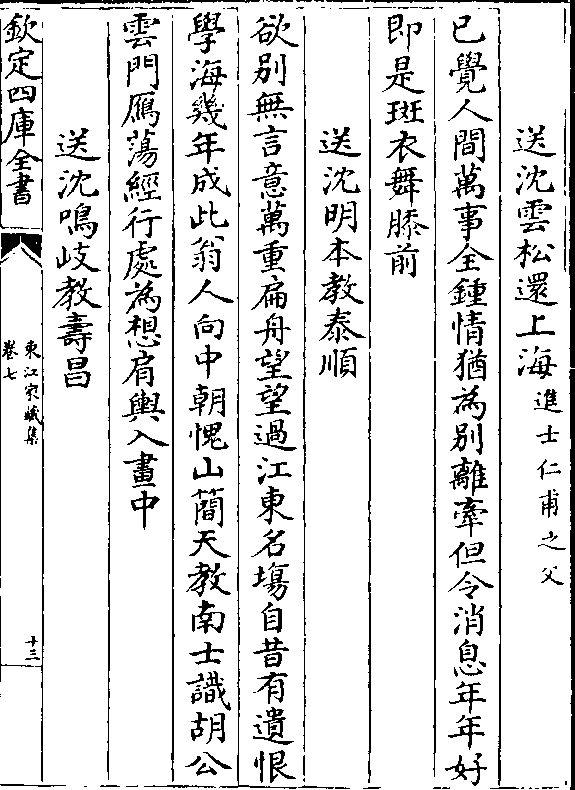 送沈雲松還上海進士仁甫之父
已覺人間萬事全鍾情猶為別離牽但令消息年年好
即是斑衣舞膝前
送沈明本教泰順
欲別無言意萬重扁舟望望過江東名塲自昔有遺恨
學海幾年成此翁人向中朝愧山簡天教南士識胡公
雲門鴈蕩經行處為想肩輿入畫中
送沈鳴岐教壽昌
欽定四庫全書
東江家藏集
卷七
十三